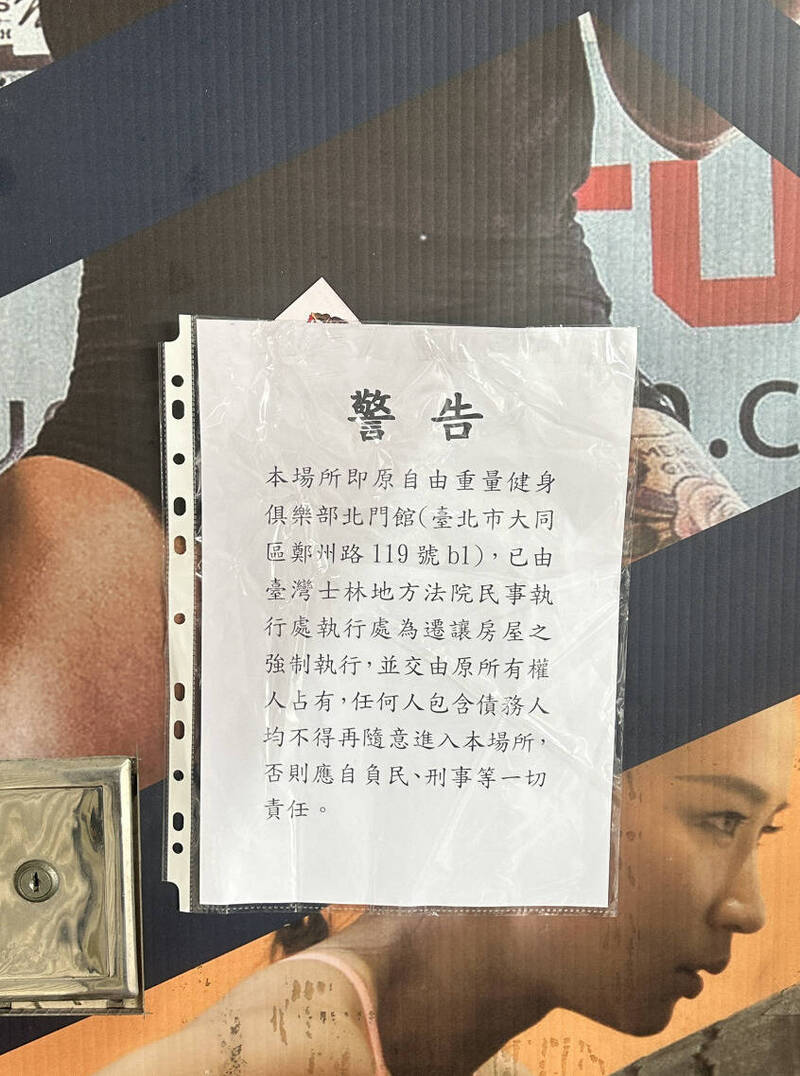 警告
本場所即原自由重量健身
俱樂部北門館(臺北市大同
區鄭州路119號b1)，已由
臺灣士林地方法院民事執
行處執行處為遷讓房屋之
強制執行，並交由原所有權
人占有，任何人包含債務人
均不得再隨意進入本場所，
否則應自負民、刑事等一切
責任。